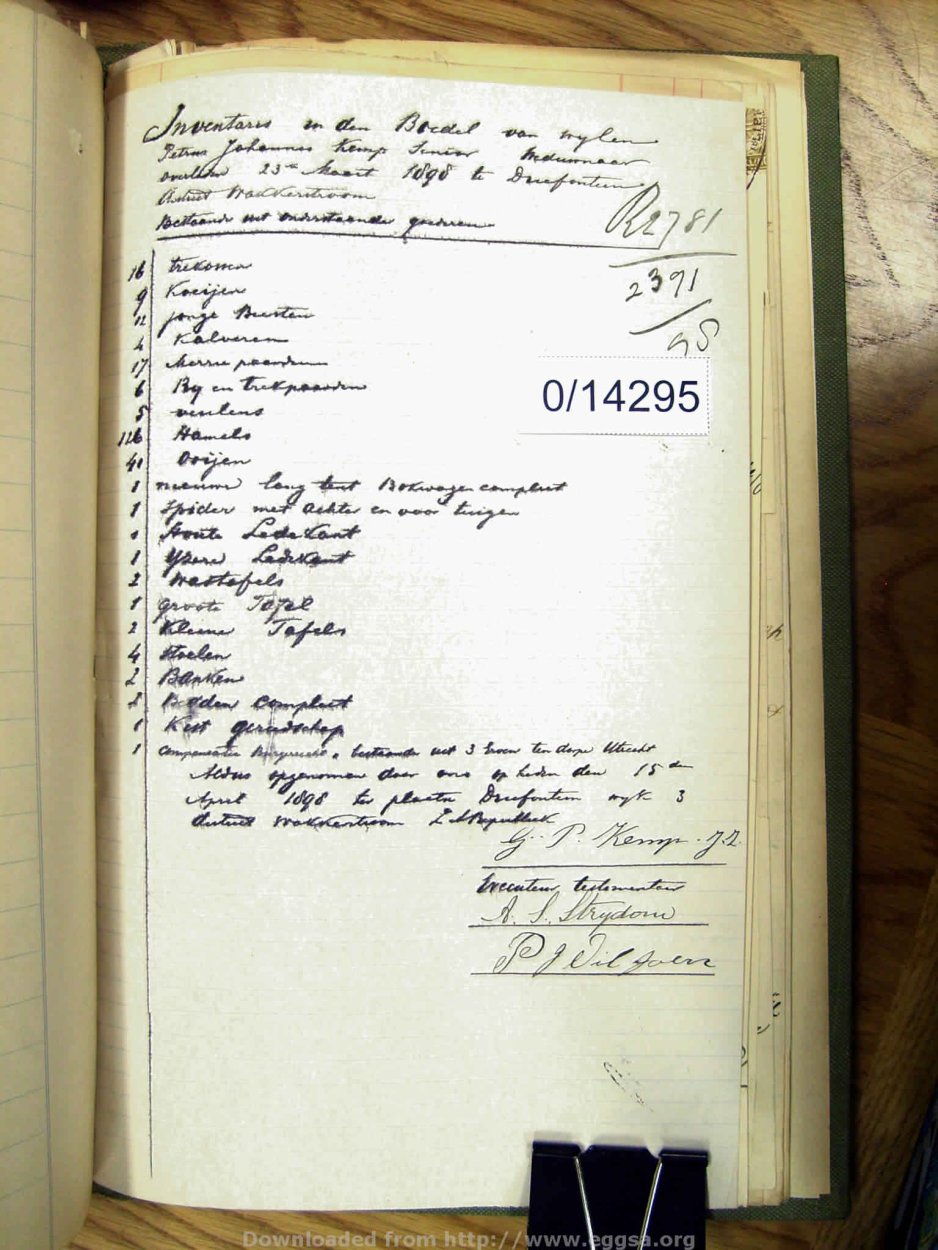 Inventaris in den Boedel van wylen
Petrus Johannes Kemp Senior Weduwnaar
overleden 23ste Maart 1898 te Driefontein
District Wakkerstroom
Bestaande uit onderstaande goederen
R2781
2391
95
0/14295
16 trekossen
9 Koeijen
12 jonge Beesten
4 Kalveren
17 Merrie paarden
6 Ry en trekpaarden
5 veulens
116 Hamels
41 Ooijen
1 nieuwe lang tent Bokwagen compleet
1 Spider met achter en voor tuigen
1 Houte Ledekant
1 Ysere Ledekant
2 Wastafels
1 groote Tafel
2 Kleine Tafels
4 Stoelen
2 Banken
2 Bedden compleet
1 Kist gereedschap
1 compensatie bestaande uit 3 Erven ten dorpe Utrecht
Aldus opgenomen door ons op heden den 15den
April 1898 ter plaatse Driefontein wyk 3
district Wakkerstroom Z A Republiek
G. P. Kemp. J.Z.
Executeur testamentair
A. S. Strydom
P J Viljoen
Downloaded from http://www.eggsa.org